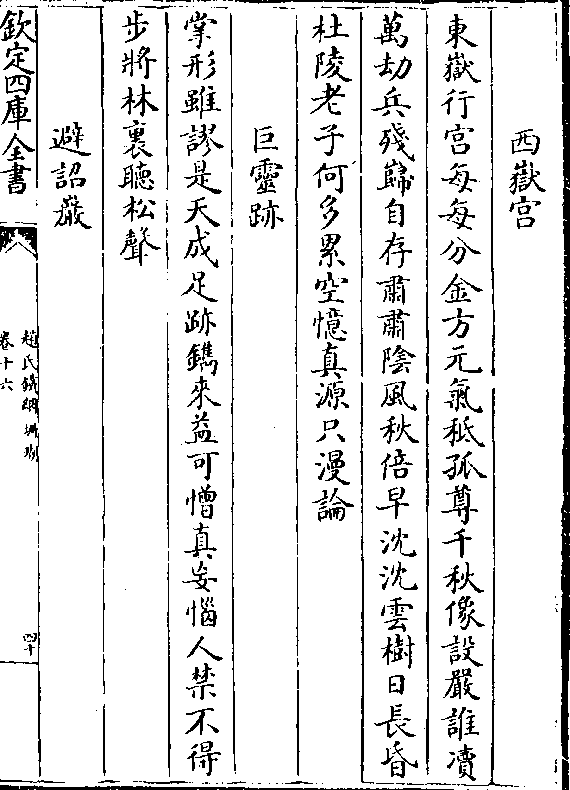 西嶽宫
東嶽行宫每每分金方元氣秪孤尊千秋像設嚴誰凟
萬劫兵殘巋自存肅肅陰風秋倍早沈沈雲樹日長昏
杜陵老子何多累空憶真源只漫論
巨靈跡
掌形雖謬是天成足跡鐫來益可憎真妄惱人禁不得
步將林裏聽松聲
避詔巖
欽定四庫全書
趙氏鐵網珊瑚
卷十六
四十